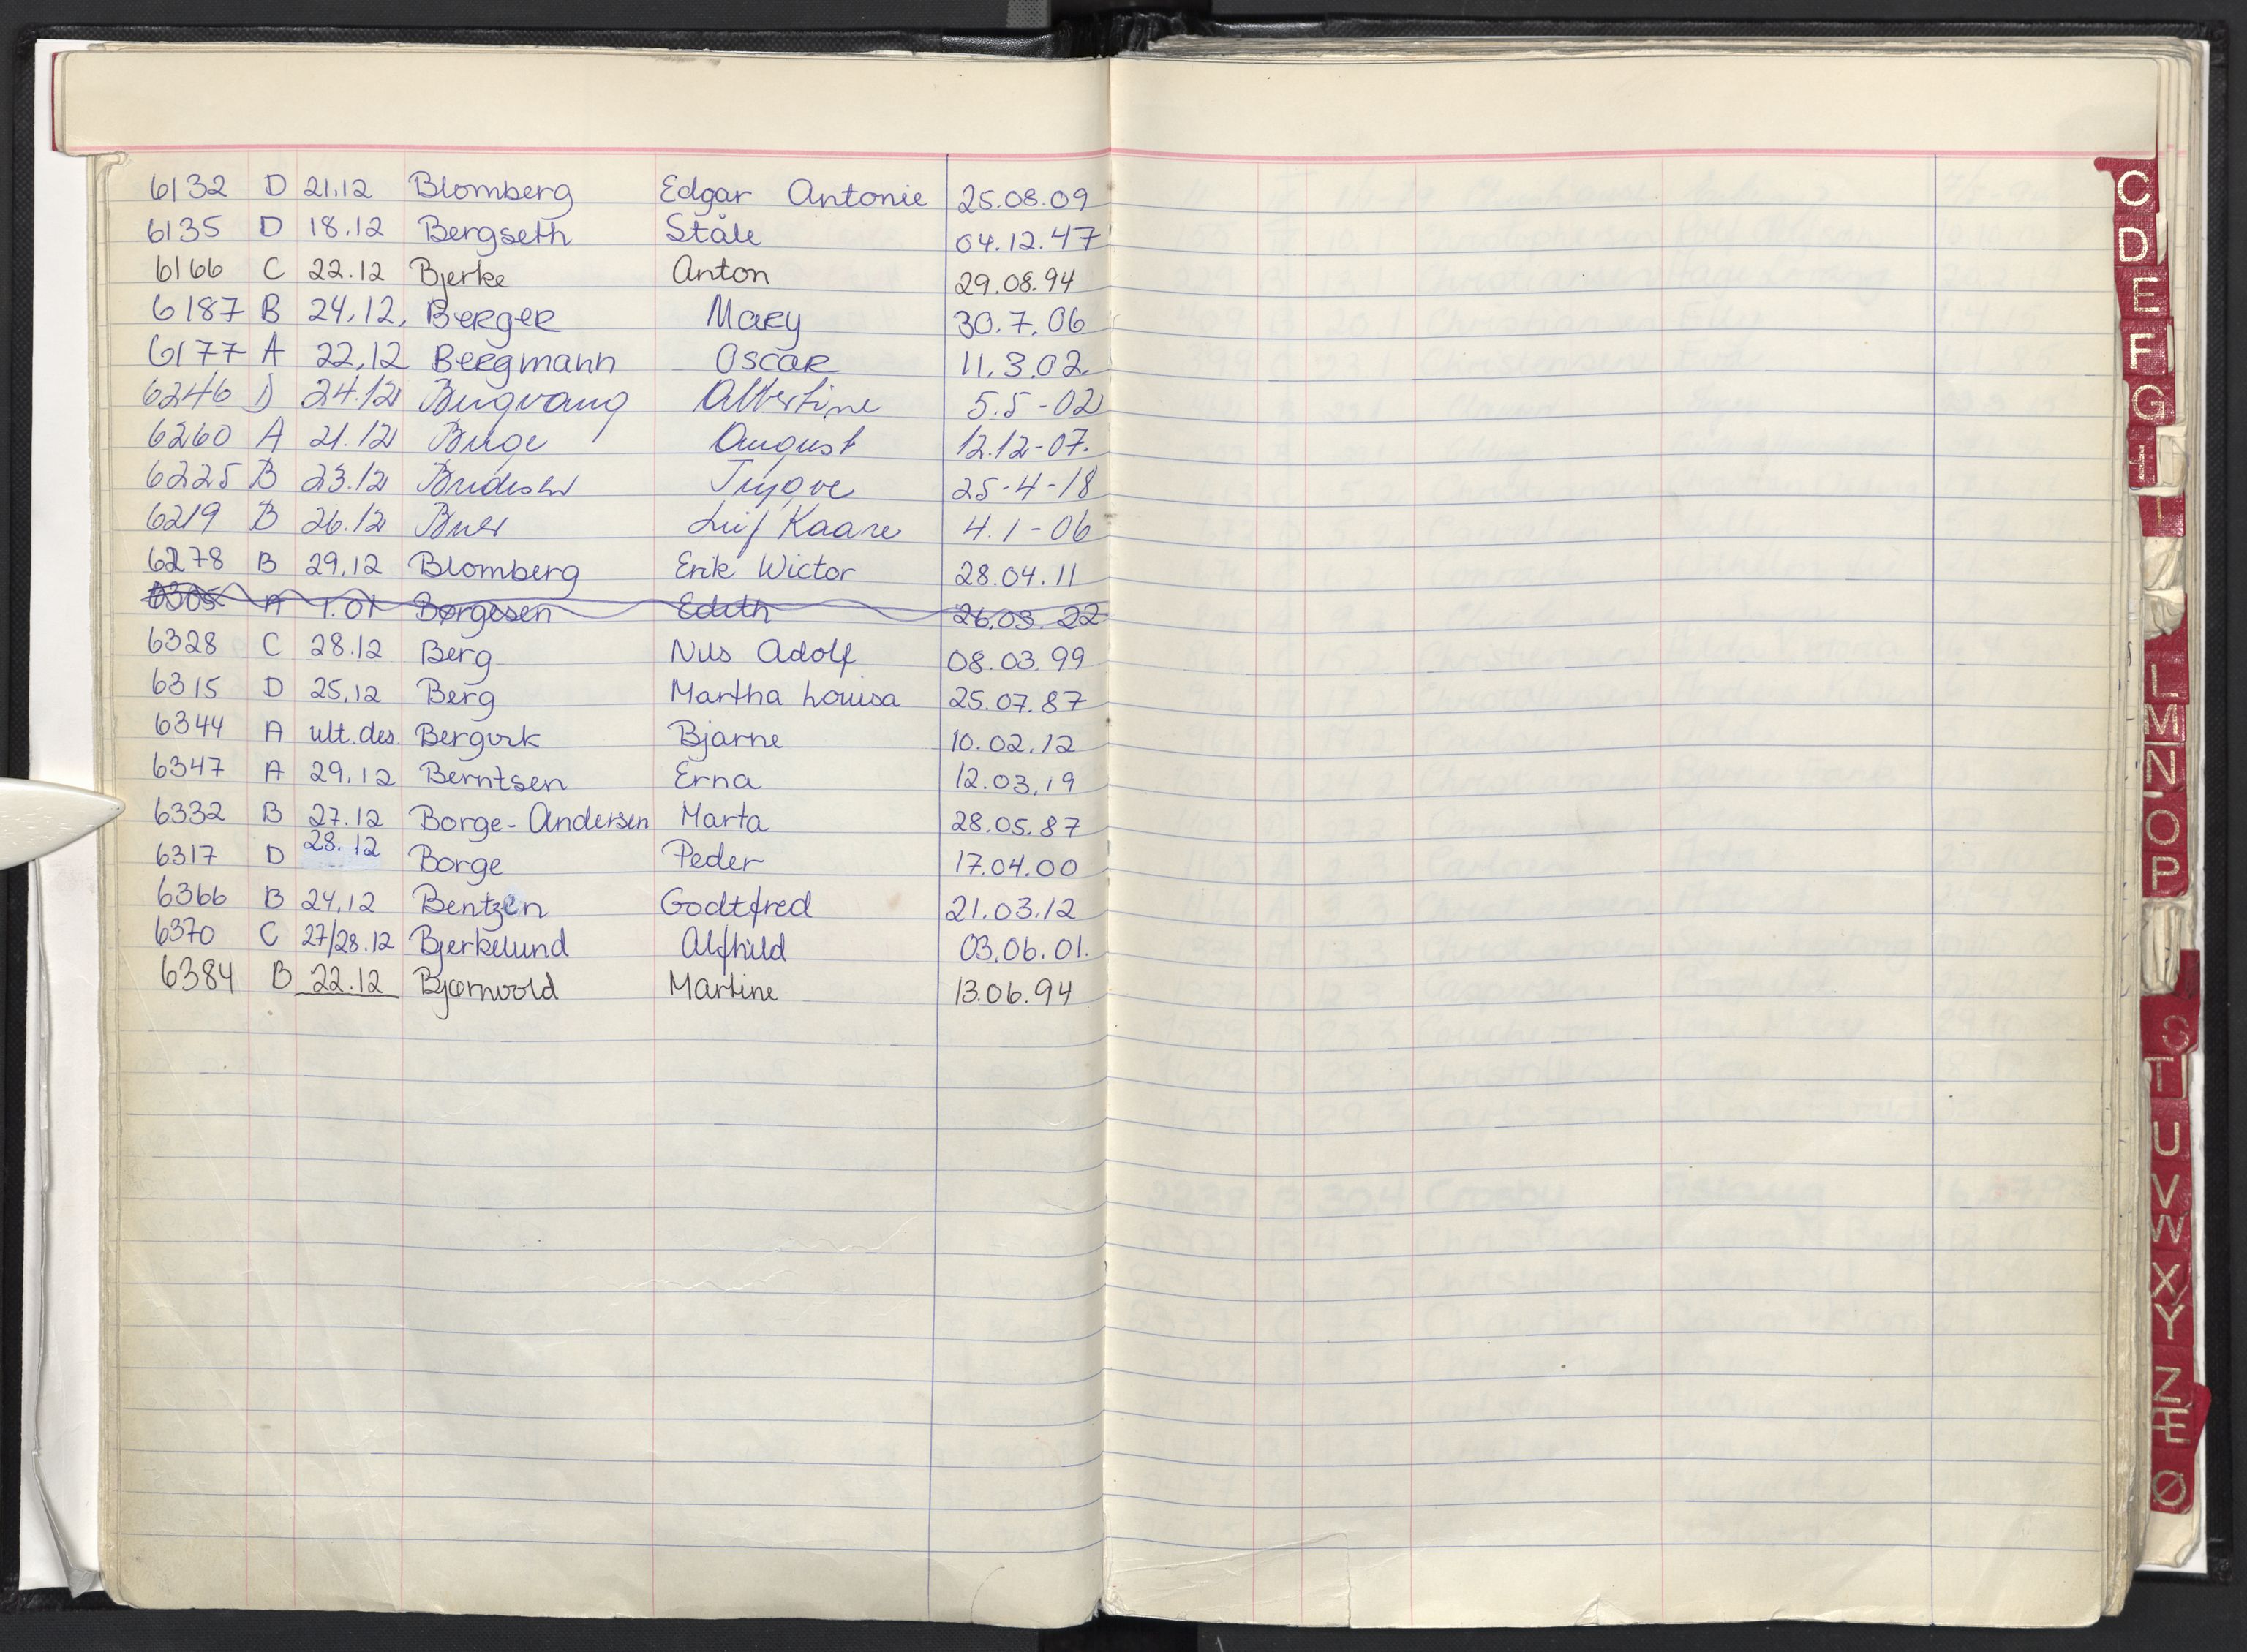 6132 D 21.12 Blomberg Edgar Antonie 25.08.09
6135 D 18.12 Bergseth Ståle 04.12.47
6166 C 22.12 Bjerke Anton 29.08.94
6187 B 24.12. Berger Mary 30.7.06
6177 A 22.12 Bergmann Oscar 11.3.02
6246 D 24.12 Bergvang Albertine 5.5-02
6260 A 21.12 Berge August 12.12-07.
6225 B 23.12 Trygve 25-4-18
6219 B 26.12 Leif Kaare 4.1-06
6278 B 29.12 Blomberg Erik Wictor 28.04.11
6305 A 1.01 Børgesen Edith 26.03.22
6328 C 28.12 Berg Nils Adolf 08.03.99
6315 D 25.12 Berg Martha Louisa 25.07.87
6344 A ult.des. Bergvik Bjarne 10.02.12
6347 A 29.12 Berntsen Erna 12.03.19
6332 B 27.12 Borge-Andersen Marta 28.05.87
6317 D 28.12 Borge Peder 17.04.00
6366 B 24.12 Bentzen Godtfred 21.03.12
6370 C 27/28.12 Bjerkelund Alfhild 03.06.01.
6384 B 22.12 Bjørnvold Martine 13.06.94
C
D
E
F
G
H
I
L
M
N
O
P
S
T
U
V
W
X
Y
Z
Æ
Ø